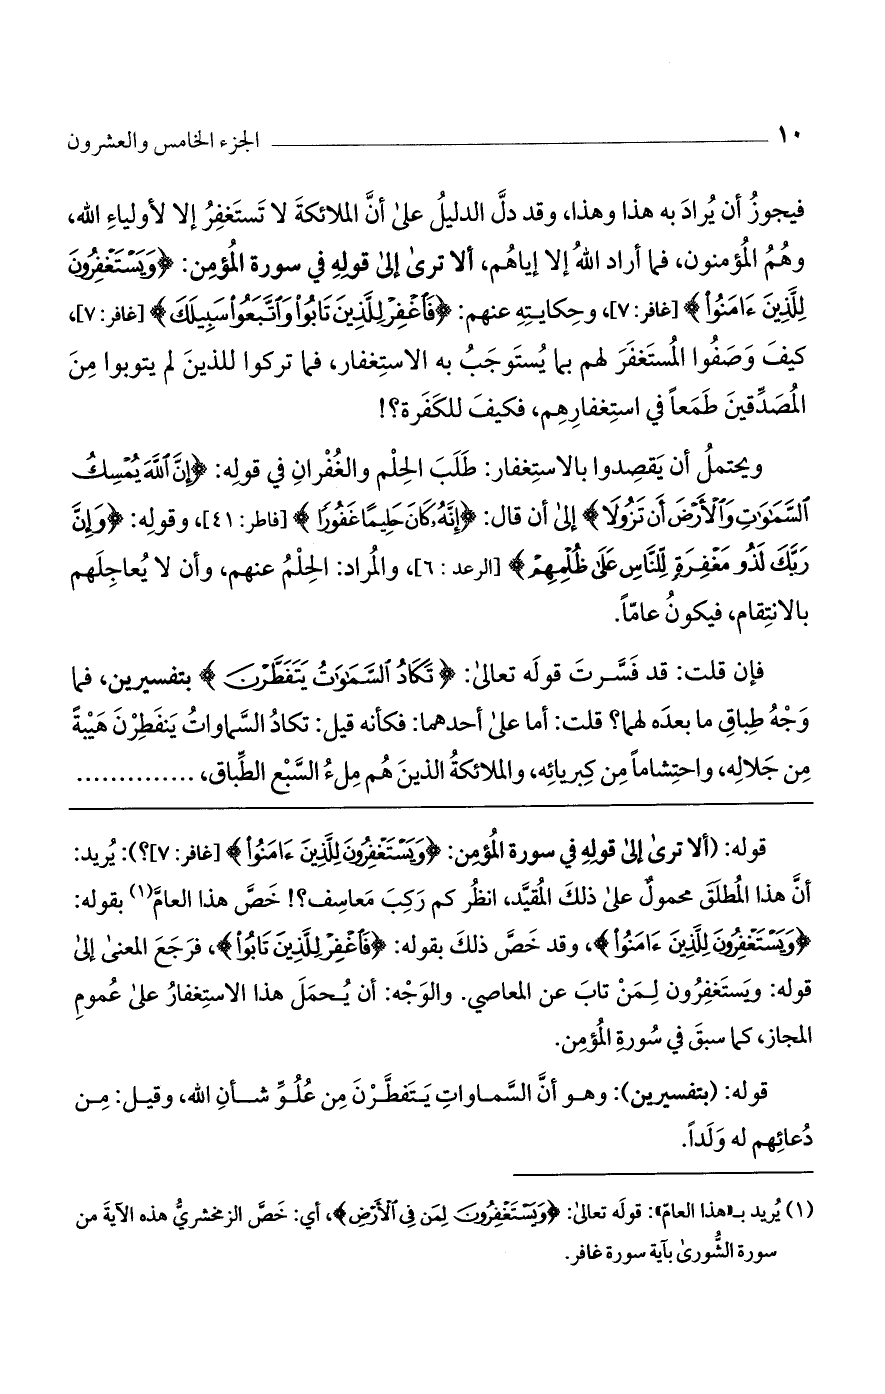 ١٠ ــــــــــــــــــــ الجزء الخامس والعشرون
فيجوزُ أن يُرادَ به هذا وهذا، وقد دلَّ الدليلُ علىٰ أنَّ الملائكةَ لا تَستَغفِرُ إلا لأولياءِ الله،
وهُمُ المُؤمنون، فما أراد اللهُ إلا إياهُم، ألا ترىٰ إلىٰ قولِهِ في سورة المُؤمِن: ﴿وَيَسْتَغْفِرُونَ
لِلَّذِينَ ءَامَنُوا۟﴾ [غافر: ٧]، وحِكايـتِهِ عنهم: ﴿فَٱغْفِرْ لِلَّذِينَ تَابُوا۟ وَٱتَّبَعُوا۟ سَبِيلَكَ﴾ [غافر: ٧]،
كيفَ وَصَفُوا المُستَغفَرَ لهم بما يُستَوجَبُ به الاستِغفار، فما تركوا للذينَ لم يتوبوا مِنَ
المُصَدِّقينَ طَمَعاً في استِغفارِهِم، فكيفَ للكَفَرة؟!
ويحتملُ أن يَقصِدوا بالاستِغفار: طَلَبَ الحِلْم والغُفْرانِ في قولِه: ﴿إِنَّ ٱللَّهَ يُمْسِكُ
ٱلسَّمَٰوَٰتِ وَٱلْأَرْضَ أَن تَزُولَا﴾ إلىٰ أن قال: ﴿إِنَّهُۥ كَانَ حَلِيمًا غَفُورًا﴾ [فاطر: ٤١]، وقولِه: ﴿وَإِنَّ
رَبَّكَ لَذُو مَغْفِرَةٍ لِّلنَّاسِ عَلَىٰ ظُلْمِهِمْ﴾ [الرعد : ٦]، والمُراد: الحِلْمُ عنهم، وأن لا يُعاجِلَهم
بالانتِقام، فيكونُ عامّاً.
فإن قلت: قد فَسَّـرتَ قولَه تعالىٰ: ﴿تَكَادُ ٱلسَّمَٰوَٰتُ يَتَفَطَّرْنَ﴾ بتفسيرين، فما
وَجْهُ طِباقِ ما بعدَه لهما؟ قلت: أما علىٰ أحدهما: فكأنه قيل: تكادُ السَّماواتُ يَنفَطِرْنَ هَيْبةً
مِن جَلالِه، واحتِشاماً مِن كِبريائِه، والملائكةُ الذينَ هُم مِلءُ السَّبْعِ الطِّباق، ..............
قوله: (ألا ترىٰ إلىٰ قولِهِ في سورة المُؤمِن: ﴿وَيَسْتَغْفِرُونَ لِلَّذِينَ ءَامَنُوا۟﴾ [غافر: ٧]؟): يُريد:
أنَّ هذا المُطلَقَ محمولٌ علىٰ ذلكَ المُقيَّد، انظُر كم رَكِبَ مَعاسِف؟! خَصَّ هذا العامَّ(١) بقوله:
﴿وَيَسْتَغْفِرُونَ لِلَّذِينَ ءَامَنُوا۟﴾، وقد خَصَّ ذلكَ بقوله: ﴿فَٱغْفِرْ لِلَّذِينَ تَابُوا۟﴾، فرَجَعَ المعنىٰ إلىٰ
قوله: ويَستَغفِرُون لِـمَنْ تابَ عن المعاصي. والوَجْه: أن يُـحمَلَ هذا الاستِغفارُ علىٰ عُمومِ
المجاز، كما سبقَ في سُورةِ المُؤمِن.
قوله: (بتفسيرين): وهـو أنَّ السَّمـاواتِ يَـتَفطَّـرْنَ مِن عُلُـوِّ شـأنِ الله، وقيـل: مِـن
دُعائِهم له وَلَداً.
(١) يُريد بـ«هذا العامّ»: قولَه تعالىٰ: ﴿وَيَسْتَغْفِرُونَ لِمَن فِى ٱلْأَرْضِ﴾، أي: خَصَّ الزمخشريُّ هذه الآيةَ من
سورة الشُّورىٰ بآية سورة غافر.